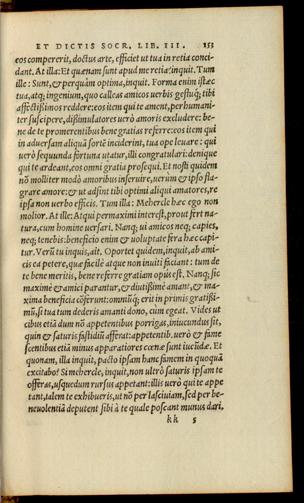 ET DICTIS SOCR. LIB. III. 153
eos compererit, doctus arte, efficiet ut tua in retia conci-
dant. At illa: Et quænam sunt apud me retia? inquit. Tum
ille: Sunt, & perquàm optima, inquit. Forma enim istæc
tua, atq; ingenium, quo calleas amicos uerbis gestuq́; tibi
affectissimos reddere: eos item qui te ament, per humani-
ter suscipere, dissimulatores uerò amoris excludere: be-
ne de te promerentibus bene gratias referre: eos item qui
in aduersam aliquã sortẽ inciderint, tua ope leuare: qui
uerò secunda fortuna utatur, illi congratulari: denique
qui te ardeant, eos omni gratia prosequi. Et nosti quidem
nõ molliter modò amoribus inseruire, uerùm & ipso fla-
grare amore: & ut adsint tibi optimi aliqui amatores, re
ipsa non uerbo efficis. Tum illa: Mehercle hæc ego non
molior. At ille: Atqui permaximi interest, prout fert na-
tura, cum homine uersari. Nanq; ui amicos neq; capies,
neq; tenebis: beneficio enim & uoluptate fera hæc capi-
tur. Verũ tu inquis, ait. Oportet quidem, inquit, ab ami-
cis ea petere, quæ facilè atque non inuiti faciant: tum de
te bene meritis, bene referre gratiam opus est. Nanq; sic
maximè & amici parantur, & diutissimè amant, & ma-
xima beneficia cõferunt: omniũq; erit in primis gratissi-
mũ, si tua tum dederis amanti dono, cùm egeat. Vides ut
cibus etiã dum nõ appetentibus porrigas, iniucundus sit,
quin & saturis fastidiũ afferat: appetentib. uerò & fame
scentibus etiã minus apparatiores cœnæ sunt iucũdæ. Et
quonam, illa inquit, pacto ipsam hanc famem in quoquã
excitabo? Si mehercle, inquit, non ultrò saturis ipsam te
offeras, usquedum rursus appetant: illis uerò qui te appe
tant, talem te exhibueris, ut nõ per lasciuiam, sed per be-
neuolentiã deputent sibi à te quale poscant munus dari.
kk 5